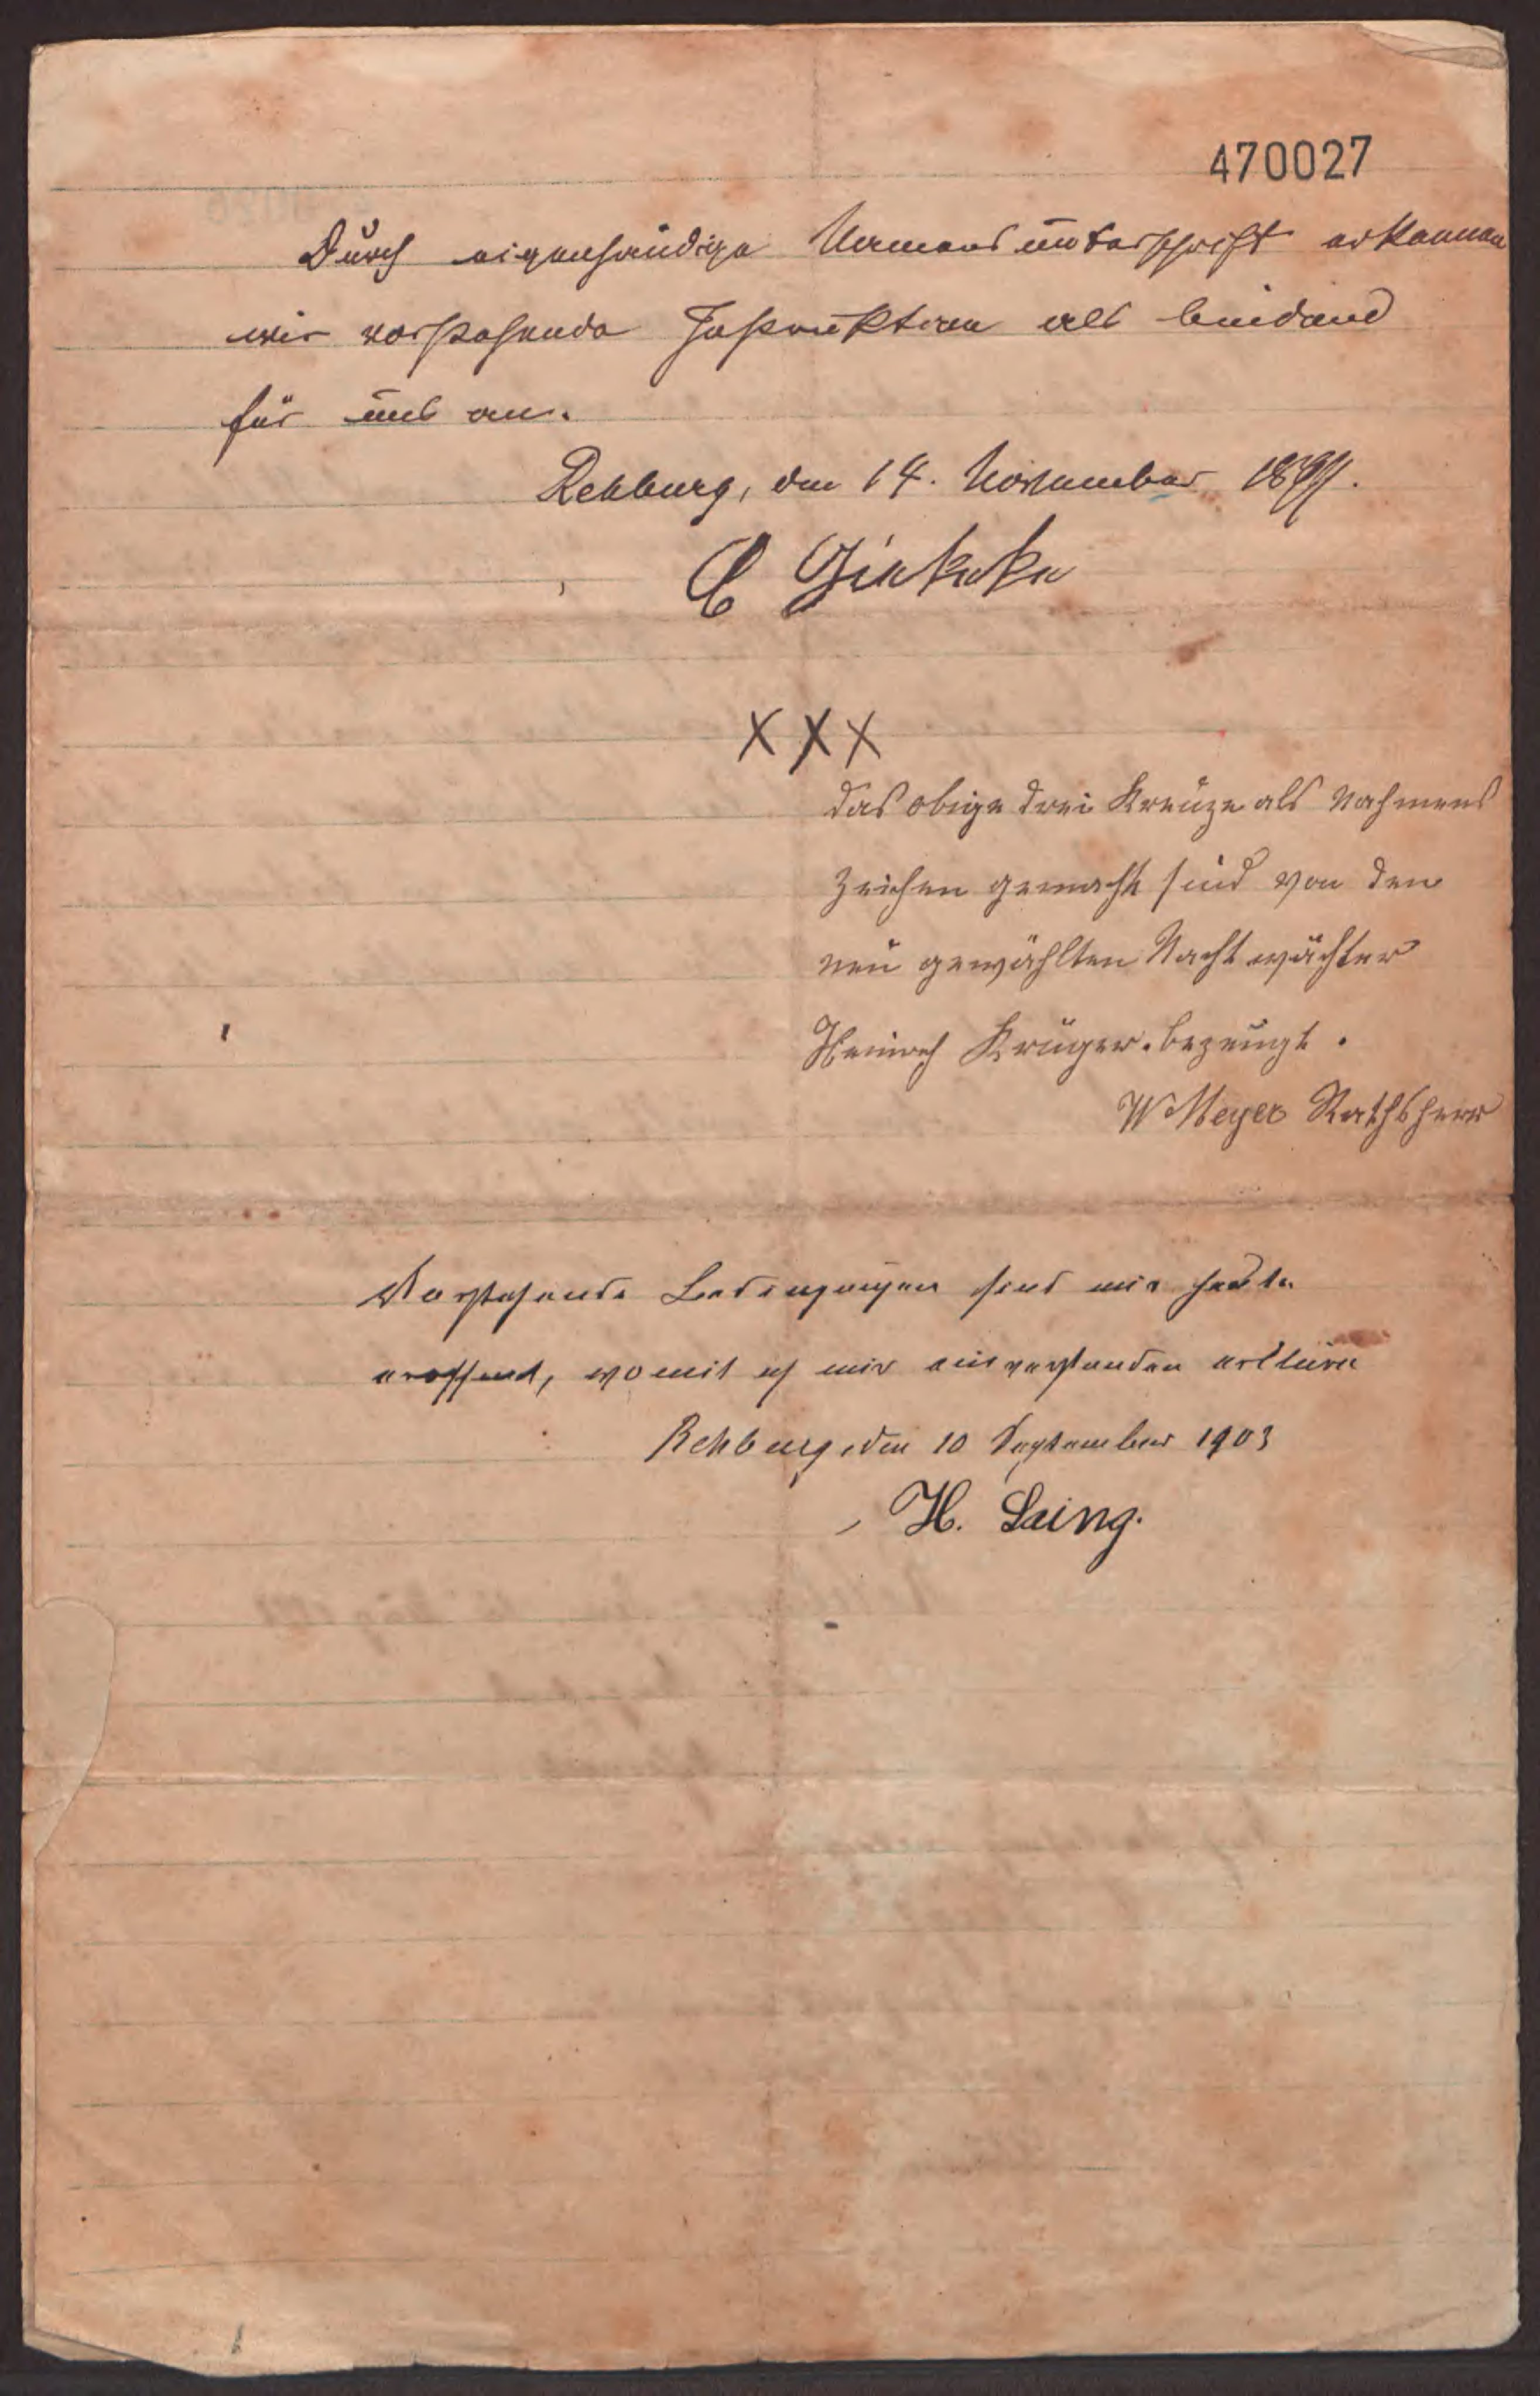 470027
Durch eigenhändige Namensunterschrift erkennen
wir vorstehende Instruktion als bindend
für uns an.
Rehburg, den 14. November
C
X X X
das obige drei Kreuze als Nahmens
Zeichen gemacht sind von den
neu gewählten Nachtwächter
Heinrich Krüger. bezeugt.
W Meyer Rathsherr
Vorstehende Bedingungen sind mir heute
eröffnet, womit ich mir einverstanden erkläre
Rehburg, den 10 September 1903
H. Laing.